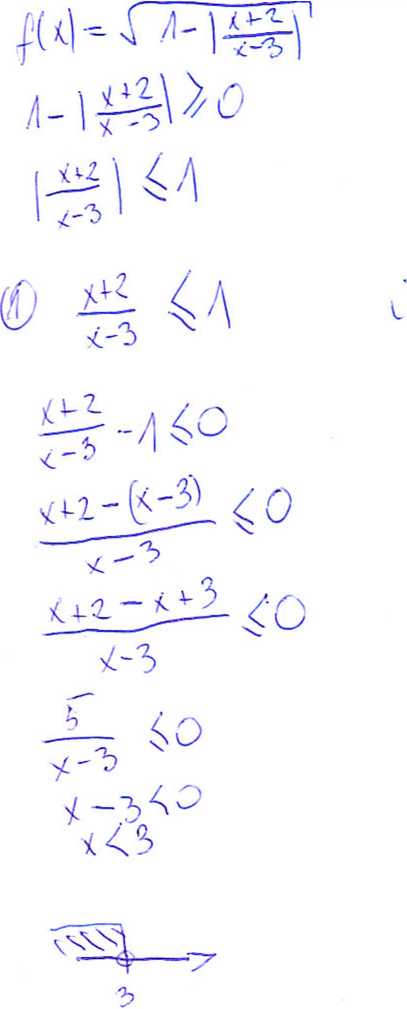 f(x) = √(1 - |(x+2)/(x-3)|)
1 - |(x+2)/(x-3)| ≥ 0
|(x+2)/(x-3)| ≤ 1
① (x+2)/(x-3) ≤ 1 i
(x+2)/(x-3) - 1 ≤ 0
(x+2-(x-3))/(x-3) ≤ 0
(x+2-x+3)/(x-3) ≤ 0
5/(x-3) ≤ 0
x-3 < 0
x < 3
3